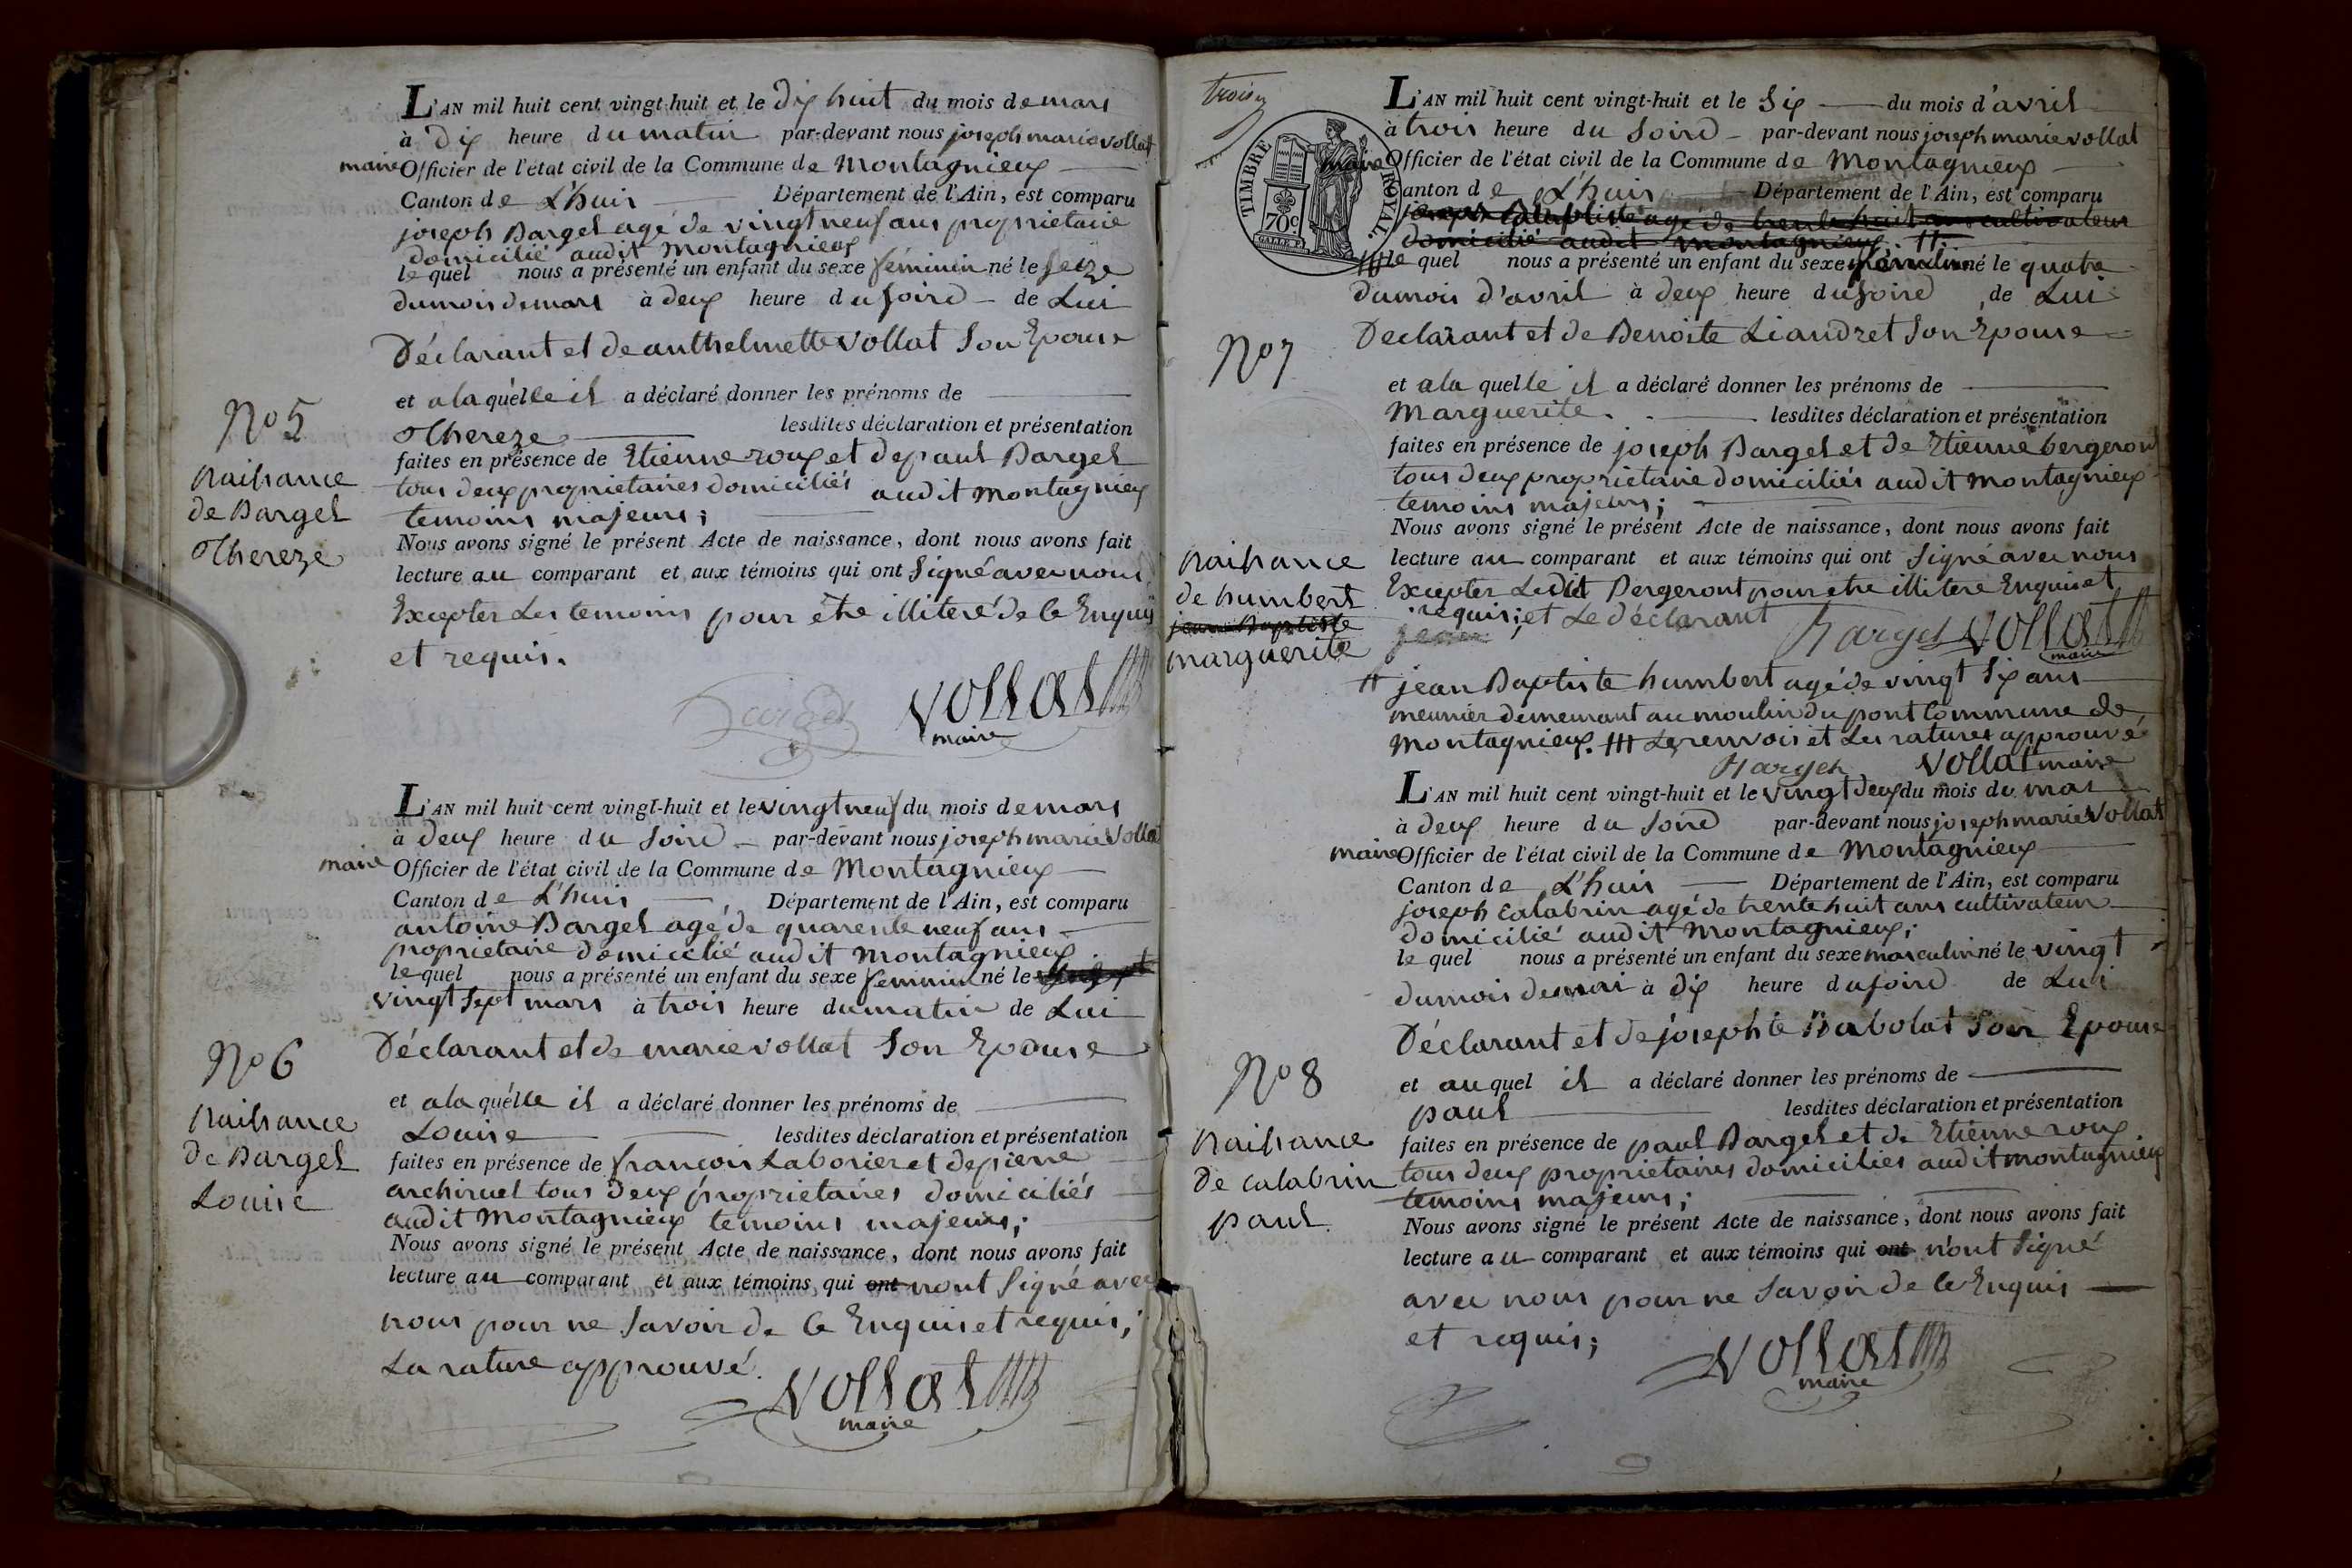 L'AN mil huit cent vingt-huit et le dix huit du mois de mars
à dix heure du matin par-devant nous joseph marie vollat
maire Officier de l'état civil de la Commune de Montagnieux
Canton de L'huis Département de l'Ain, est comparu
joseph Barget agé de vingt neuf ans proprietaire
domicilié audit Montagnieux
le quel nous a présenté un enfant du sexe féminin né le seize
du mois de mars à deux heure du soird de Lui
Déclarant et de anthelmette vollat Son Epouse
et a la quélle il a déclaré donner les prénoms de
Thereze lesdites déclaration et présentation
faites en présence de Etienne roux et de paul Barget
tous deux proprietaires domiciliés audit Montagnieux
temoins majeurs;
Nous avons signé le présent Acte de naissance, dont nous avons fait
lecture au comparant et aux témoins qui ont Signé avec nous
Excepter Les temoins pour être illiteré de ce Enquis
et requis.
Barget vollat
maire
No 5
Naissance
de Barget
Thereze
L'AN mil huit cent vingt-huit et le vingt neuf du mois de mars
à deux heure du Soird par-devant nous joseph marie vollat
maire Officier de l'état civil de la Commune de Montagnieux
Canton de L'huis Département de l'Ain, est comparu
antoine Barget agé de quarente neuf ans
proprietaire domicilié audit Montagnieux
le quel nous a présenté un enfant du sexe feminin né le
vingt Sept mars à trois heure du matin de Lui
Déclarant et de marie vollat Son Epouse
et a la quélle il a déclaré donner les prénoms de
Louise lesdites déclaration et présentation
faites en présence de françois Laborier et de pierre
archiruel tous deux proprietaires domiciliés
audit Montagnieux temoins majeurs;
Nous avons signé le présent Acte de naissance, dont nous avons fait
lecture au comparant et aux témoins qui ont nont Signé avec
nous pour ne Savoir de ce Enquis et requis;
La rature approuvé.
vollat
maire
No 6
Naissance
de Barget
Louise
L'AN mil huit cent vingt-huit et le Six du mois d'avril
à trois heure du Soird par-devant nous joseph marie vollat
maire Officier de l'état civil de la Commune de Montagnieux
Canton de L'huis Département de l'Ain, est comparu
agé de trente huit ans cultivateur
domicilié audit montagnieux
TIMBRE ROYAL
70c
le quel nous a présenté un enfant du sexe né le quatre
du mois d'avril à deux heure du soird de Lui
Declarant et de Benoite Liandret Son Epouse
et a la quelle il a déclaré donner les prénoms de
Marguerite. lesdites déclaration et présentation
faites en présence de joseph Barget et de Etienne bergeront
tous deux proprietaire domiciliés audit Montagnieux
temoins majeurs;
Nous avons signé le présent Acte de naissance, dont nous avons fait
lecture au comparant et aux témoins qui ont Signé avec nous
Excepter Ledit Bergeront pour etre illitere Enquis et
requis; et Le déclarant
Barget vollat
maire
No 7
Naissance
de humbert
jean Baptiste
marguerite
jean Baptiste humbert agé de vingt Six ans
meunier demeurant au moulin du pont Commune de
Montagnieux. Le renvois et Les ratures approuvé
Barget vollat maire
L'AN mil huit cent vingt-huit et le vingt deux du mois du mai
à deux heure du Soird par-devant nous joseph marie vollat
maire Officier de l'état civil de la Commune de Montagnieux
Canton de L'huis Département de l'Ain, est comparu
joseph Calabrin agé de trente huit ans cultivateur
domicilié audit Montagnieux;
le quel nous a présenté un enfant du sexe masculin né le vingt
du mois de mai à dix heure du soird de Lui
Déclarant et de josephte Babolat Son Epouse
et au quel il a déclaré donner les prénoms de
paul lesdites déclaration et présentation
faites en présence de paul Barget et de Etienne roux
tous deux proprietaires domiciliés audit montagnieux
temoins majeurs;
Nous avons signé le présent Acte de naissance, dont nous avons fait
lecture au comparant et aux témoins qui ont n'ont Signé
avec nous pour ne Savoir de ce Enquis
et requis;
vollat
maire
No 8
Naissance
De calabrin
paul.